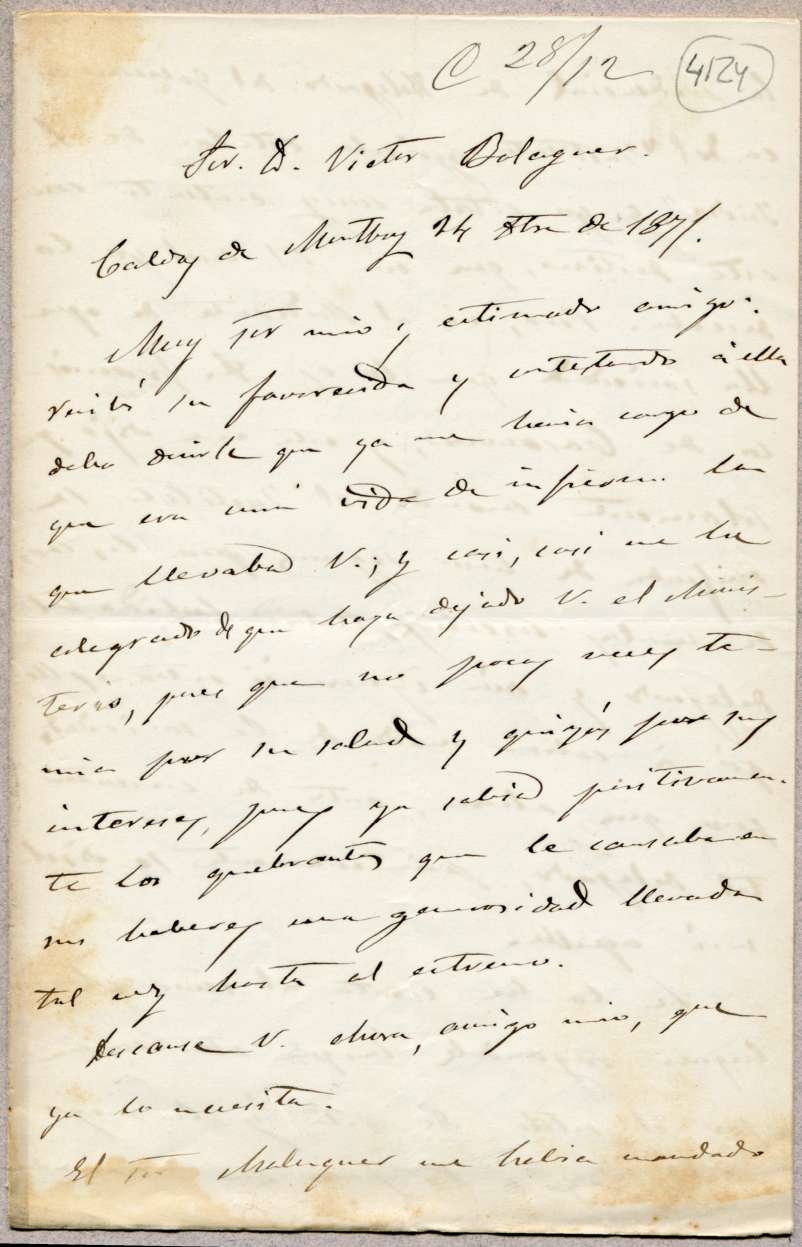 C 28/12 4124
Sr. D. Victor Balaguer.
Caldas de Montbuy 24 Xbre de 1871.
Muy Sor mio y estimado amigo:
recibí su favorecida y contestando á ella
debo decirle que ya me hacia cargo de
que era una vida de infierno la
que llevaba V.; y casi, casi me he
alegrado de que haya dejado V. el Minis-
terio, pues que no pocas veces te-
mia por su salud y quizás por sus
intereses, pues ya sabia positivamen-
te los quebrantos que le causaba en
sus haberes una generosidad llevada
tal vez hasta al estremo.
Descanse V. ahora, amigo mio, que
ya lo necesita.
El Sor Maluquer me habia mandado